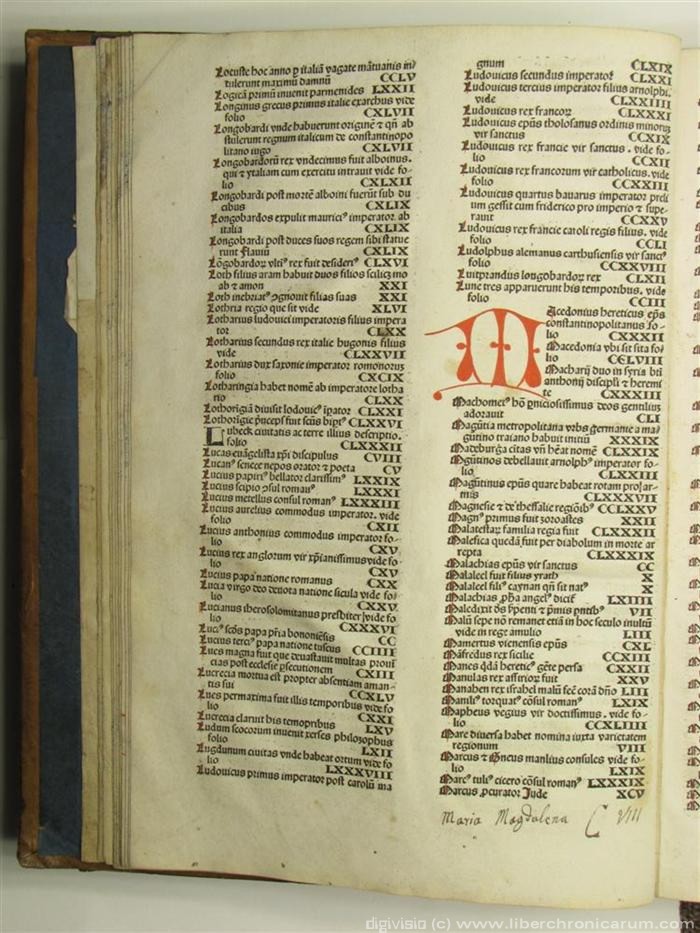 Locuste hoc anno ꝑ italiã vagate mãtuanis in-
tulerunt maximũ damnũ CCLV
Logicã primũ inuenit parmenides LXXII
Longinus grecus primus italie exarchus vide
folio CXLVII
Longobardi vnde habuerunt originẽ ⁊ qñ ab
stulerunt regnum italicum de constantinopo
litano iugo CXLVII
Longobardorũ rex vndecimus fuit alboinus.
qui ⁊ ytaliam cum exercitu intrauit vide fo-
lio CXLXII
Longobardi post mortẽ alboini fuerũt sub du
cibus CXLIX
Longobardos expulit mauriciꝰ imperator. ab
italia CXLIX
Longobardi post duces suos regem sibi statue
runt flauiũ CXLIX
Lõgobardoꝝ vltiꝰ rex fuit desideriꝰ CLXVI
Loth filius aram habuit duos filios scilicz mo
ab ⁊ amon XXI
Loth inebriatꝰ ↄgnouit filias suas XXI
Lothria regio que sit vide XLVI
Lotharius ludouici imperatoris filius impera
tor CLXX
Lotharius secundus rex italic hugonis filius
vide CLXXVII
Lotharius dux saxonie imperator romonorum
folio CXCIX
Lotharingia habet nomẽ ab imperatore lotha
rio CLXX
Lothorigiã diuisit lodouicꝰ ip̃ator CLXXI
Lothorigie p̃nceps fuit scũs CLXXVI
Lubeck ciuitatis ac terre illius descriptio.
folio CLXXXII
Lucas euãgelista xp̃i discipulus CVIII
Lucanꝰ senece nepos orator ⁊ poeta CV
Lucius papiriꝰ bellator clarissimꝰ LXXIX
Lucius scipio ↄsul romanꝰ LXXXI
Lucius metellus consul romanꝰ LXXXIII
Lucius aurelius commodus imperator. vide
folio CXII
Lucius anthonius commodus imperator fo-
lio CXV
Lucius rex anglorum vir xp̃ianissimus vide fo-
lio CXV
Lucius papa natione romanus CXX
Lucia virgo deo deuota natione sicula vide fo-
lio CXXV
Lucianus iherosolomitanus presbiter vide fo
lio CXXXVI
Luciꝰ scðs papa pr̃ia bononiẽsis CC
Lucius terciꝰ papa natione tuscus CCIIII
Lues magna fuit que deuastauit multas proui
cias post ecclesie ꝑsecutionem CXIII
Lucrecia mortua est propter absentiam aman-
tis sui CCXLV
Lues permaxima fuit illis temporibus vide fo
lio CXXI
Lucrecia claruit his temopribus LXV
Ludum scocorum inuenit xerses philosophus
folio LXII
Lugdunum ciuitas vnde habeat ortum vide fo
lio LXXXVIII
Ludouicus primus imperator post carolũ ma
gnum CLXIX
Ludouicus secundus imperator CLXXI
Ludouicus tercius imperator filius arnolphi.
vide CLXXIIII
Ludouicus rex francoꝝ CLXXXI
Ludouicus ep̃us tholosanus ordinis minorum
vir sanctus CCXIX
Ludouicus rex francie vir sanctus . vide fo-
lio CCXII
Ludouicus rex francorum vir catholicus. vide
folio CCXXIII
Ludouicus quartus bauarus imperator preli
um gessit cum friderico pro imperio ⁊ supe-
rauit CCXXV
Ludouicus rex francie caroli regis filius. vide
folio CCLI
Ludolphus alemanus carthusiensis vir sanctꝰ
folio CCXXVIII
Luitprandus longobardoꝝ rex CLXII
Lune tres apparuerunt his temporibus. vide
folio CCIII
Macedonius hereticus ep̃us
constantinopolitanus fo-
lio CXXXII
Macedonia vbi sit sita fo-
lio CELVIII
Macharij duo in syria bti
anthonij discipli ⁊ heremi
te CXXXIII
Machometꝰ hõ ꝑniciosissimus deos gentiliuz
adorauit CLI
Magũtia metropolitana vrbs germanie a ma
gũtino traiano habuit initiũ XXXIX
Madeburga citas vñ hẽat nomẽ CLXXIX
Magũtinos debellauit arnolphꝰ imperator fo-
lio CLXXIII
Magũtinus ep̃us quare habeat rotam pro ar-
mis CLXXXVII
Magnesie ⁊ de thessalie regiõibꝰ CCLXXV
Magnꝰ primus fuit zoroastes XXII
Malatestaꝝ familia regia fuit CLXXXII
Malefica quedã fuit per diabolum in morte ar
repta CLXXXIX
Malachias ep̃us vir sanctus CC
Malaleel fuit filius yrath X
Malaleel filiꝰ caynan qñ sit natꝰ X
Malachias ꝓp̃ha angelꝰ dicit̃ LIIII
Maledixit dñs ẞpenti ⁊ p̃mis pntibꝰ VII
Malũ sepe nõ remanet etiã in hoc seculo inultũ
vide in rege amulio LIII
Mamertus vienensis ep̃us CXL
Mãfredus rex sicilie CCXIII
Manes qdã hereticꝰ gẽte persa CXXII
Manulas rex assirioꝝ fuit XXV
Manahen rex israhel malũ fec̃ corã dño LIII
Manilꝰ torquatꝰ cõsul romanꝰ LXIX
Mapheus vegius vir doctissimus . vide fo-
lio CCXLIIII
Mare diuersa habet nomina iuxta varietatem
regionum VIII
Marcus ⁊ Gneus manlius consules vide fo-
lio LXIX
Marcꝰ tuliꝰ cicero cõsul romanꝰ LXXXIX
Marcus ꝓcurator Jude XCV
Maria Magdalena C VIII
digivisio (c) www.liberchronicarum.com